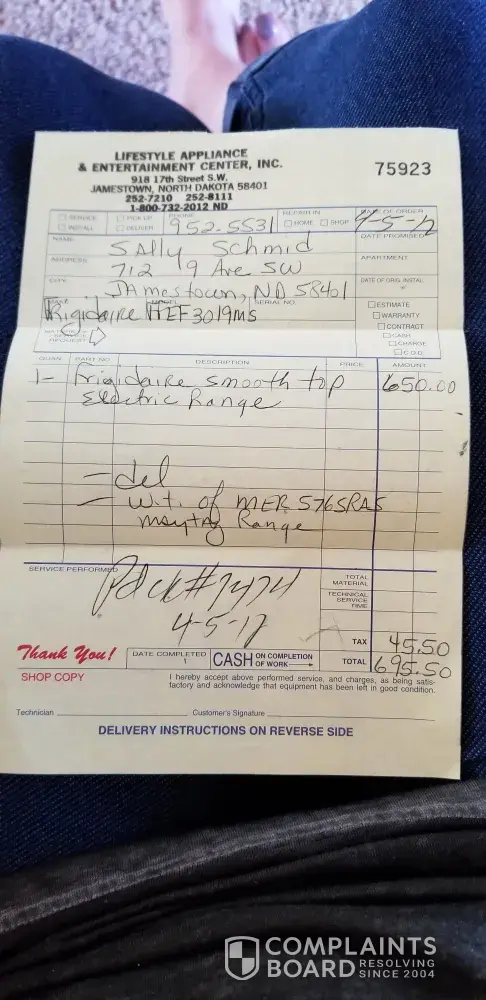 LIFESTYLE APPLIANCE
& ENTERTAINMENT CENTER, INC.
918 17th Street S.W.
JAMESTOWN, NORTH DAKOTA 58401
252-7210 252-8111
1-800-732-2012 ND
75923
SERVICE
INSTALL
PICK UP
DELIVER
PHONE
952-5531
REPAIR IN
HOME SHOP
DATE OF ORDER
4-5-17
NAME
SAlly Schmid
DATE PROMISED
ADDRESS
712 19 Ave SW
APARTMENT
CITY
JAmestown, ND 58401
DATE OF ORIG. INSTAL.
MAKE
MODEL
SERIAL NO.
Frigidaire FFEF3019MS
ESTIMATE
WARRANTY
CONTRACT
CASH
CHARGE
C.O.D.
NATURE OF
SERVICE
REQUEST
QUAN. PART NO. DESCRIPTION PRICE AMOUNT
1- Frigidaire smooth top 650.00
Electric Range
- del
- W.T. of MER5765RAS
maytag Range
SERVICE PERFORMED
Pd ck# 7474
4-5-17
TOTAL
MATERIAL
TECHNICAL
SERVICE
TIME
TAX 45.50
Thank You!
DATE COMPLETED
CASH ON COMPLETION
OF WORK
TOTAL 695.50
SHOP COPY
I hereby accept above performed service, and charges, as being satis-
factory and acknowledge that equipment has been left in good condition.
Technician
Customer's Signature
DELIVERY INSTRUCTIONS ON REVERSE SIDE
COMPLAINTS
BOARD RESOLVING
SINCE 2004